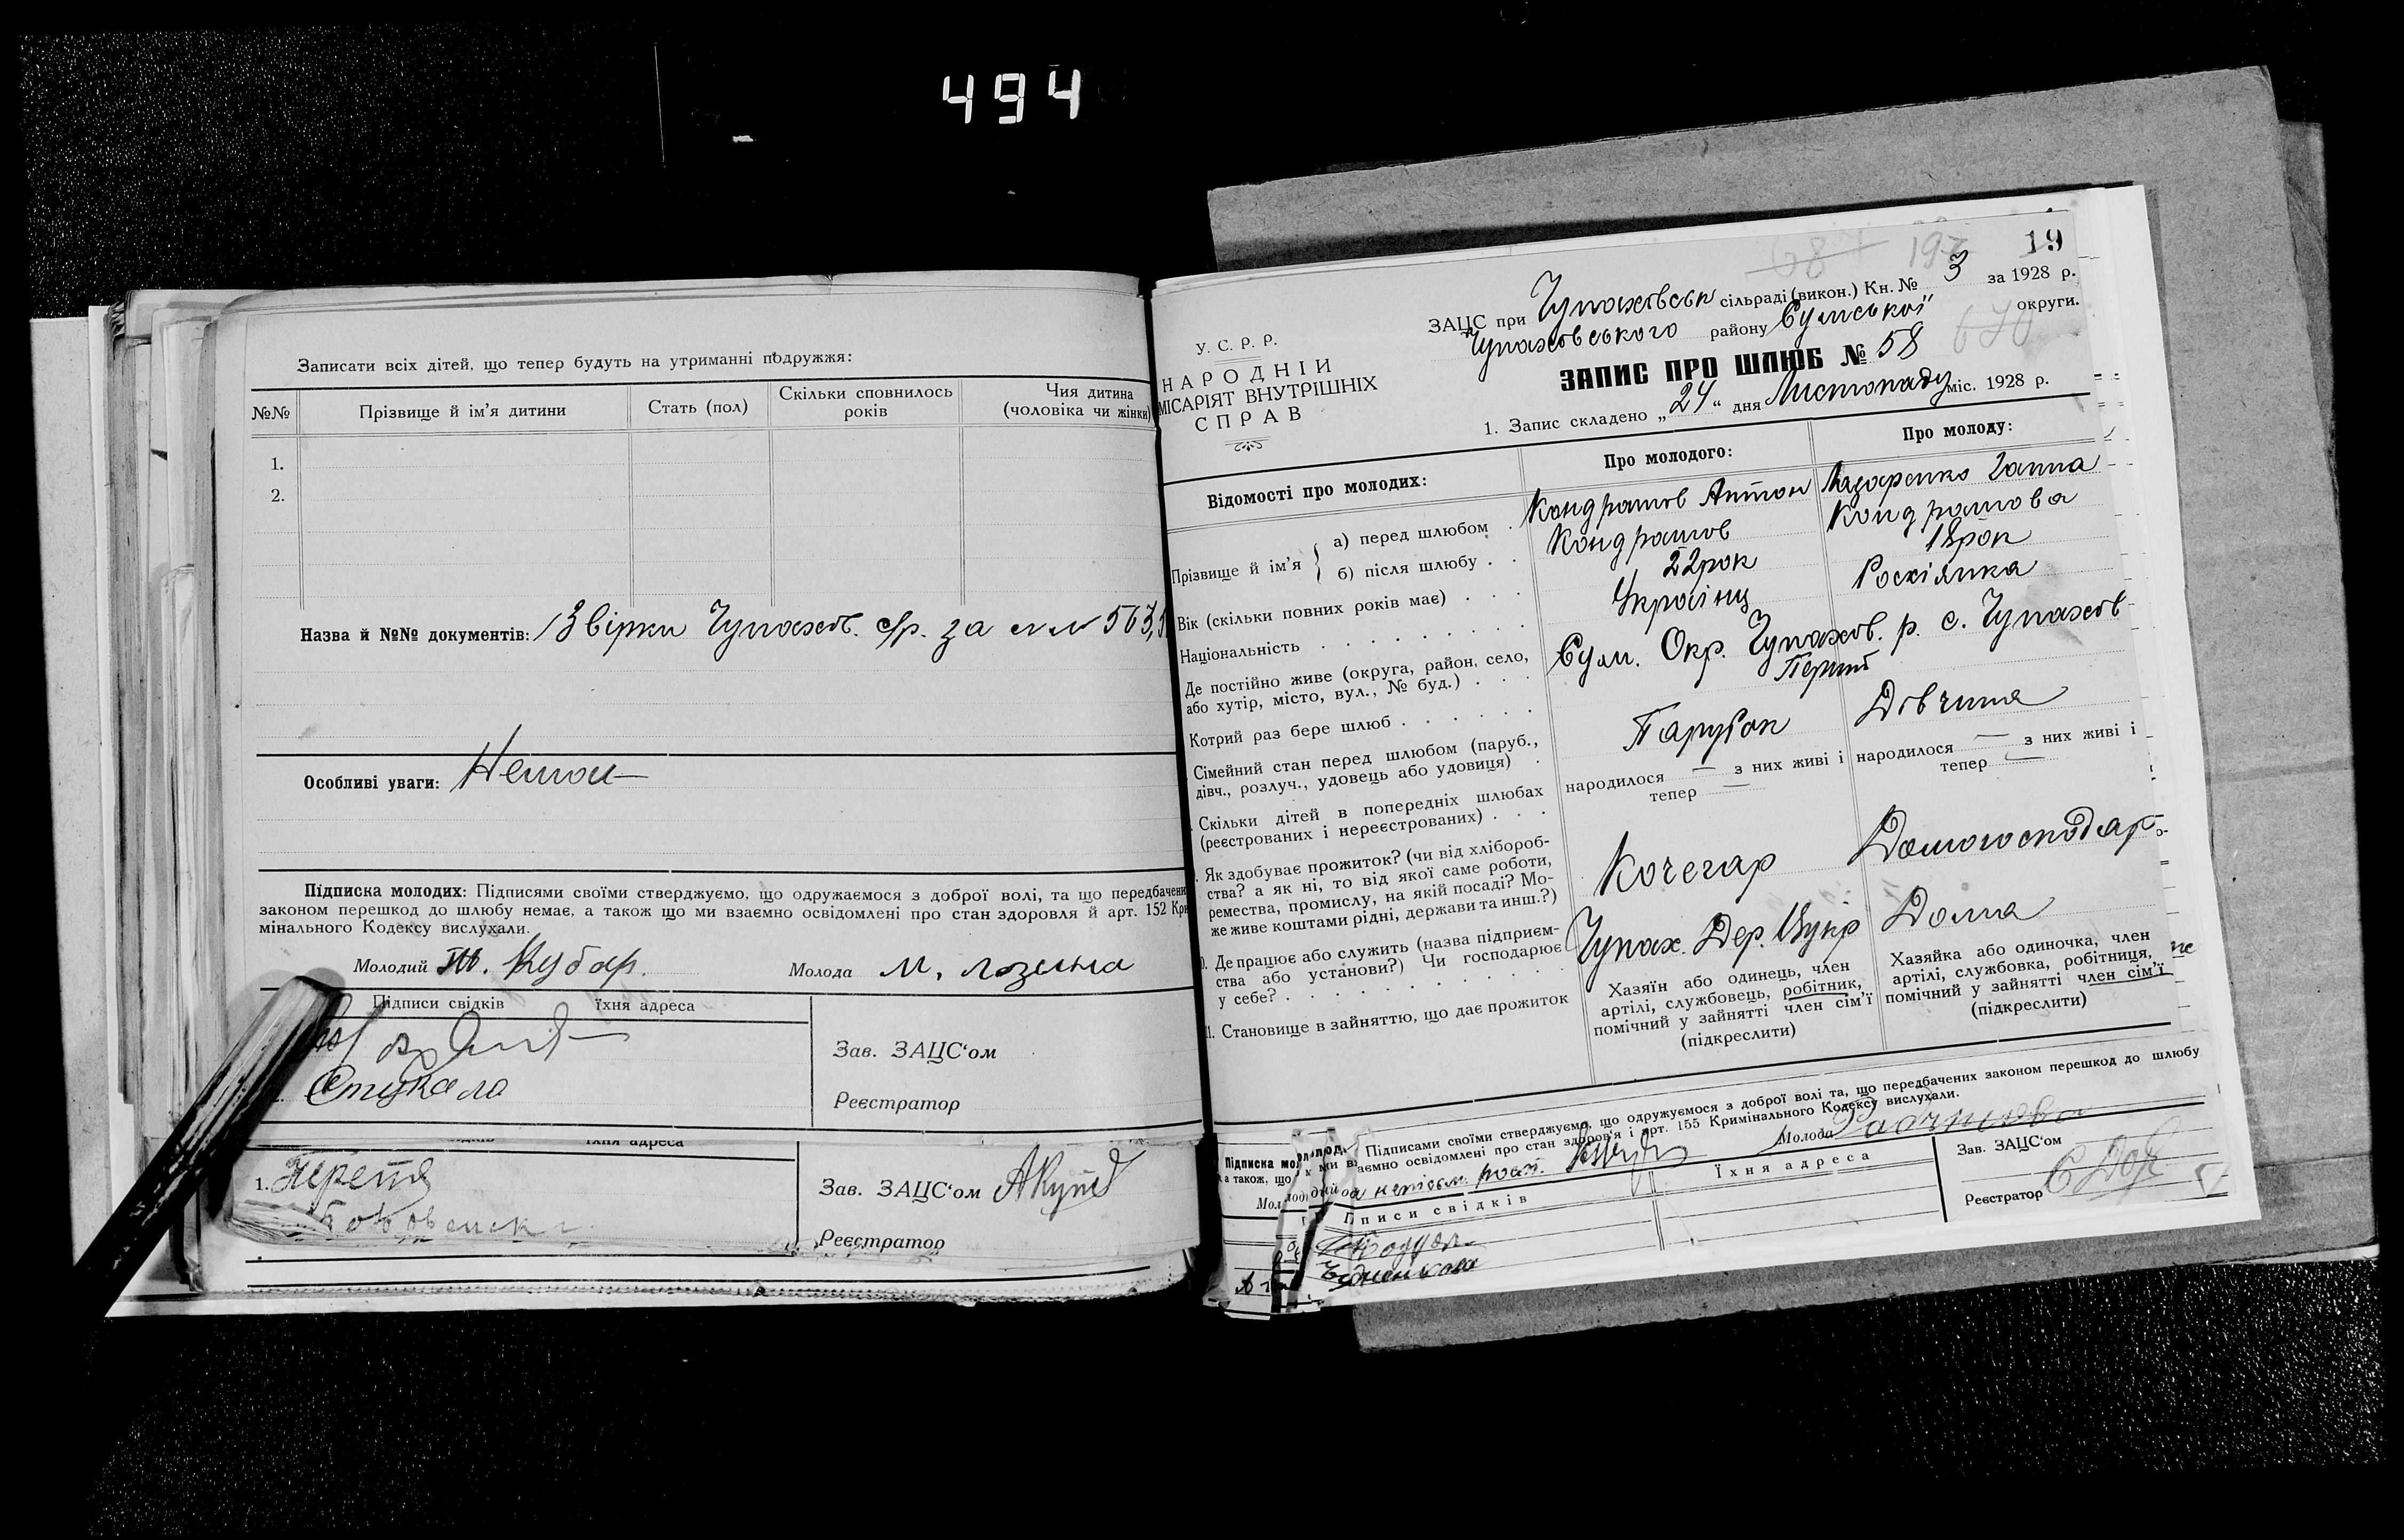 494
Записати всіх дітей, що тепер будуть на утриманні подружжя:
№№ Прізвище й ім'я дитини Стать (пол) Скільки сповнилось років Чия дитина (чоловіка чи жінки)
1.
2.
Назва й №№ документів: Звірки Чупахов. с/р. за № 563,
Особливі уваги: Немои
Підписка молодих: Підписями своїми стверджуємо, що одружаємося з доброї волі, та що передбачени
законом перешкод до шлюбу немає, а також що ми взаємно освідомлені про стан здоровля й арт. 152 Кри
мінального Кодексу вислухали.
Молодий Кубар. Молода М.
Підписи свідків їхня адреса
Стукало
Зав. ЗАЦС'ом
Реєстратор
їхня адреса
1.
Зав. ЗАЦС'ом
Реєстратор
19
У. С. Р. Р.
НАРОДНІЙ
МІСАРІЯТ ВНУТРІШНІХ
СПРАВ
ЗАЦС при Чупаховськ сільраді (викон.) Кн. № 3 за 1928 р.
Чупаховського району Сумської округи.
ЗАПИС ПРО ШЛЮБ № 58
670
1. Запис складено „24" дня Листопаду міс. 1928 р.
Відомості про молодих: Про молодого: Про молоду:
Прізвище й ім'я
а) перед шлюбом Кондрашов Антон Назаренко Ганна
б) після шлюбу Кондрашов Кондрашова
Вік (скільки повних років має) 22 рок 18 рок
Національність Українц Росіянка
Де постійно живе (округа, район, село,
або хутір, місто, вул., № буд.) Сум. Окр. Чупахов. р. с. Чупахов
Котрий раз бере шлюб Перший
Сімейний стан перед шлюбом (паруб.,
дівч., розлуч., удовець або удовиця) Парубок Дівчина
Скільки дітей в попередніх шлюбах
(реєстрованих і нереєстрованих)
народилося — з них живі і тепер —
народилося — з них живі і тепер —
Як здобуває прожиток? (чи від хлібороб-
ства? а як ні, то від якої саме роботи,
ремества, промислу, на якій посаді? Мо-
же живе коштами рідні, держави та инш.?)
Кочегар Домогосподар
Де працює або служить (назва підприєм-
ства або установи?) Чи господарює
у себе?
Чупах. Дер. Цукр Дома
11. Становище в зайняттю, що дає прожиток
Хазяїн або одинець, член
артілі, службовець, робітник,
помічний у зайнятті член сім'ї
(підкреслити)
Хазяйка або одиночка, член
артілі, службовка, робітниця,
помічний у зайнятті член сім'ї
(підкреслити)
Підписка мол
Підписами своїми стверджуємо, що одружуємося з доброї волі та, що передбачених законом перешкод до шлюбу
а також, що ми взаємно освідомлені про стан здоров'я і арт. 155 Кримінального Кодексу вислухали.
Молода
підписи свідків Їхня адреса
Зав. ЗАЦС'ом
Реєстратор